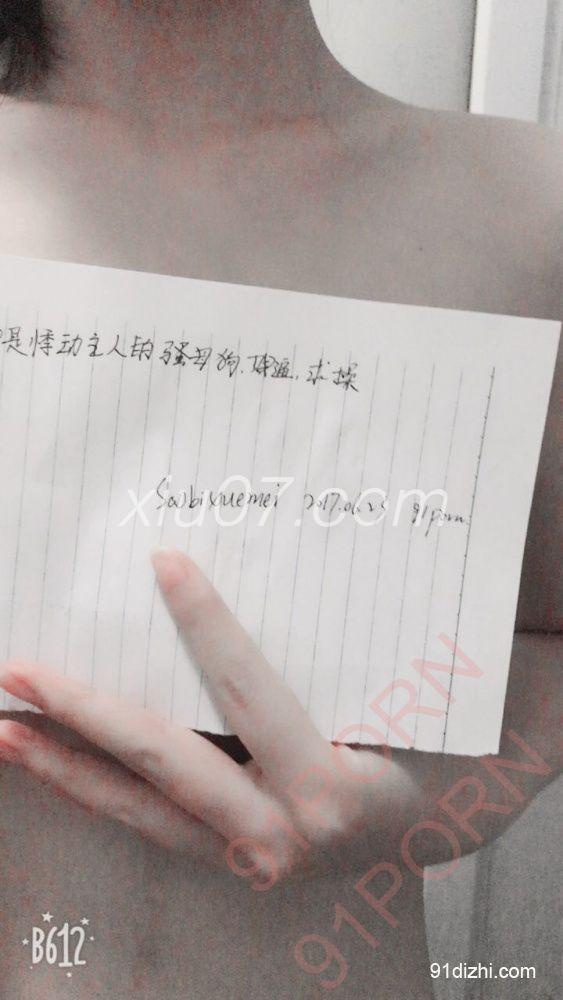 是悸动主人的骚母狗.环逼.求操
Saobixuemei 2017.06.25 91porn
xiu07.com
91PORN
91PORN
B612
91dizhi.com